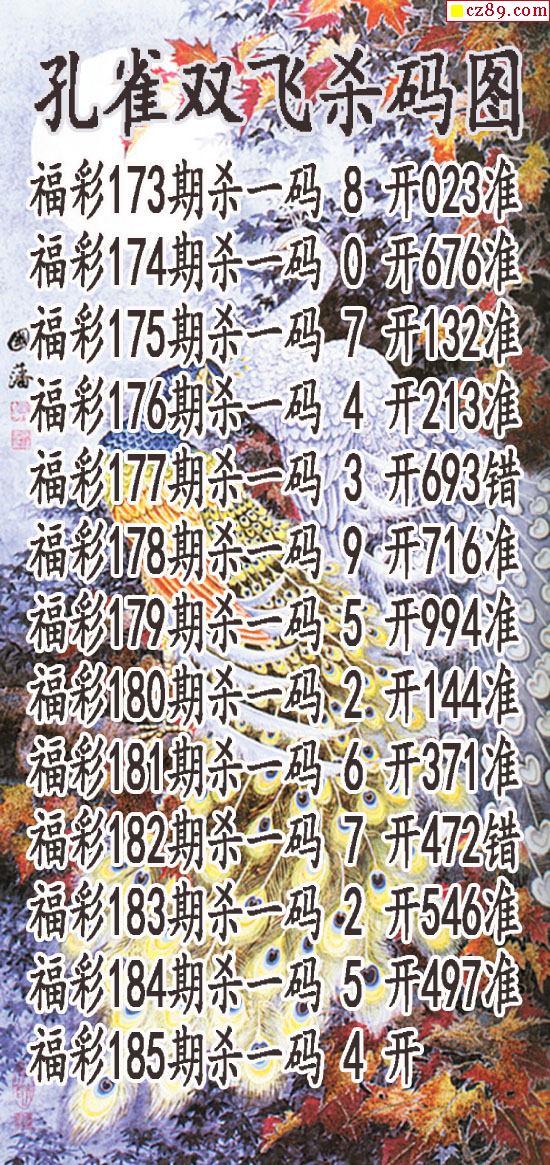 cz89.com
孔雀双飞杀码图
福彩173期杀一码 8 开023准
福彩174期杀一码 0 开676准
福彩175期杀一码 7 开132准
福彩176期杀一码 4 开213准
福彩177期杀一码 3 开693错
福彩178期杀一码 9 开716准
福彩179期杀一码 5 开994准
福彩180期杀一码 2 开144准
福彩181期杀一码 6 开371准
福彩182期杀一码 7 开472错
福彩183期杀一码 2 开546准
福彩184期杀一码 5 开497准
福彩185期杀一码 4 开